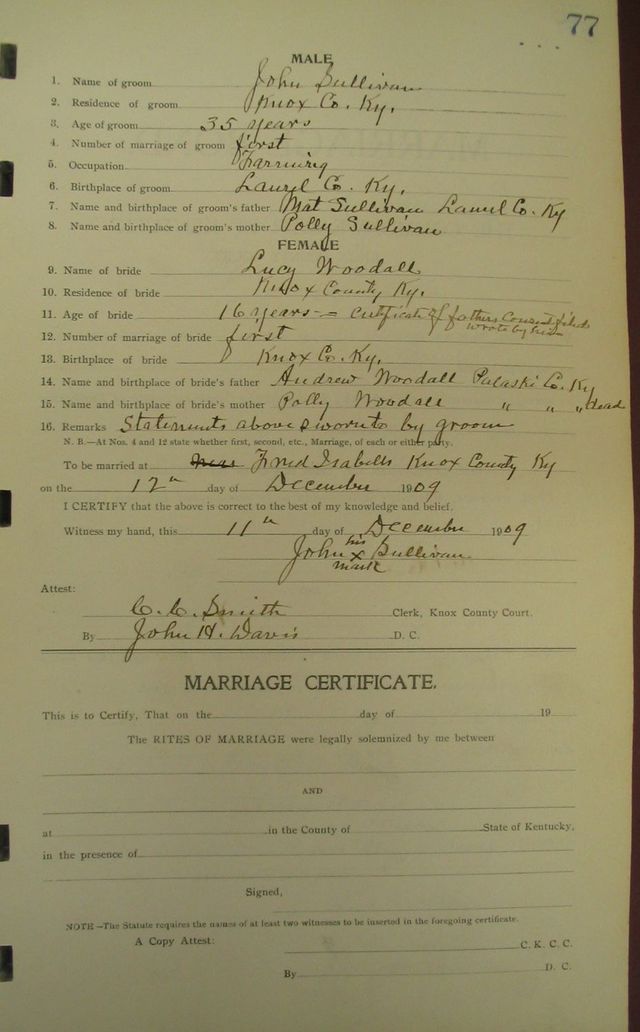 77
MALE
1. Name of groom John Sullivan
2. Residence of groom Knox Co. Ky.
3. Age of groom 35 years
4. Number of marriage of groom first
5. Occupation Farming
6. Birthplace of groom Laurel Co. Ky.
7. Name and birthplace of groom's father Mat Sullivan Laurel Co. Ky
8. Name and birthplace of groom's mother Polly Sullivan
FEMALE
9. Name of bride Lucy Woodall
10. Residence of bride Knox County Ky.
11. Age of bride 16 years = Certificate of fathers Consent filed
wrote by him
12. Number of marriage of bride first
13. Birthplace of bride Knox Co. Ky.
14. Name and birthplace of bride's father Andrew Woodall Pulaski Co. Ky
15. Name and birthplace of bride's mother Polly Woodall " " " dead
16. Remarks Statements above sworn to by groom
N. B.—At Nos. 4 and 12 state whether first, second, etc., Marriage, of each or either party.
To be married at Fred Isabells Knox County Ky
on the 12th day of December 1909
I CERTIFY that the above is correct to the best of my knowledge and belief.
Witness my hand, this 11th day of December 1909
his
John x Sullivan
mark
Attest:
C. C. Smith Clerk, Knox County Court.
By John H. Davis D. C.
MARRIAGE CERTIFICATE.
This is to Certify, That on the day of 19
The RITES OF MARRIAGE were legally solemnized by me between
AND
at in the County of State of Kentucky,
in the presence of
Signed,
NOTE—The Statute requires the names of at least two witnesses to be inserted in the foregoing certificate.
A Copy Attest: C. K. C. C.
By D. C.